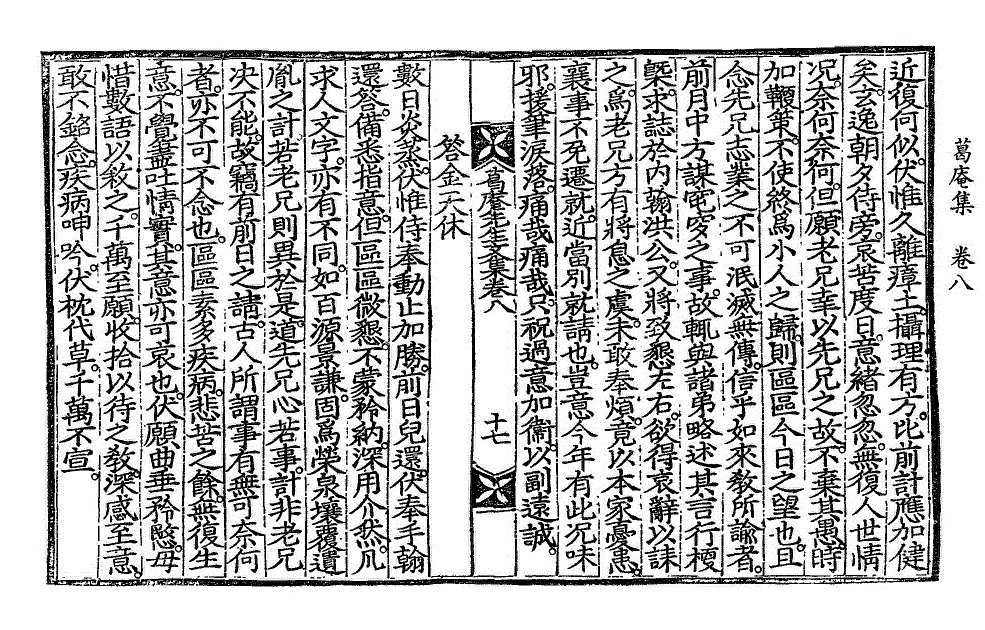 葛庵集　卷八
近復何似。伏惟久離瘴土。攝理有方。比前計應加健
矣。玄逸。朝夕侍旁。哀苦度日。意緖忽忽。無復人世情
况。奈何奈何。但願老兄幸以先兄之故。不棄其愚。時
加鞭策。不使終爲小人之歸。則區區今日之望也。且
念先兄志業之不可泯滅無傳。信乎如來敎所諭者。
前月中方謀窀穸之事。故輒與諸弟略述其言行梗
槩。求誌於內翰洪公。又將致懇左右。欲得哀辭以誄
之。爲老兄方有將息之虞。未敢奉煩。竟以本家憂患。
襄事不免遷就。近當別就請也。豈意今年有此況味
耶。援筆淚落。痛哉痛哉。只祝過意加衞。以副遠誠。
葛庵先生文集卷八　十七
答金天休
數日炎蒸。伏惟侍奉動止加勝。前日兒還。伏奉手翰
還答。備悉指意。但區區微懇。不蒙矜納。深用介然。凡
求人文字。亦有不同。如百源景謙。固爲榮泉壤覆遺
胤之計。若老兄則異於是。道先兄心若事。計非老兄
决不能。故竊有前日之請。古人所謂事有無可奈何
者。亦不可不念也。區區素多疾病。悲苦之餘。無復生
意。不覺盡吐情實。其意亦可哀也。伏願曲垂矜愍。毋
惜數語以敘之。千萬至願。收拾以待之敎。深感至意。
敢不銘念。疾病呻吟。伏枕代草。千萬不宣。